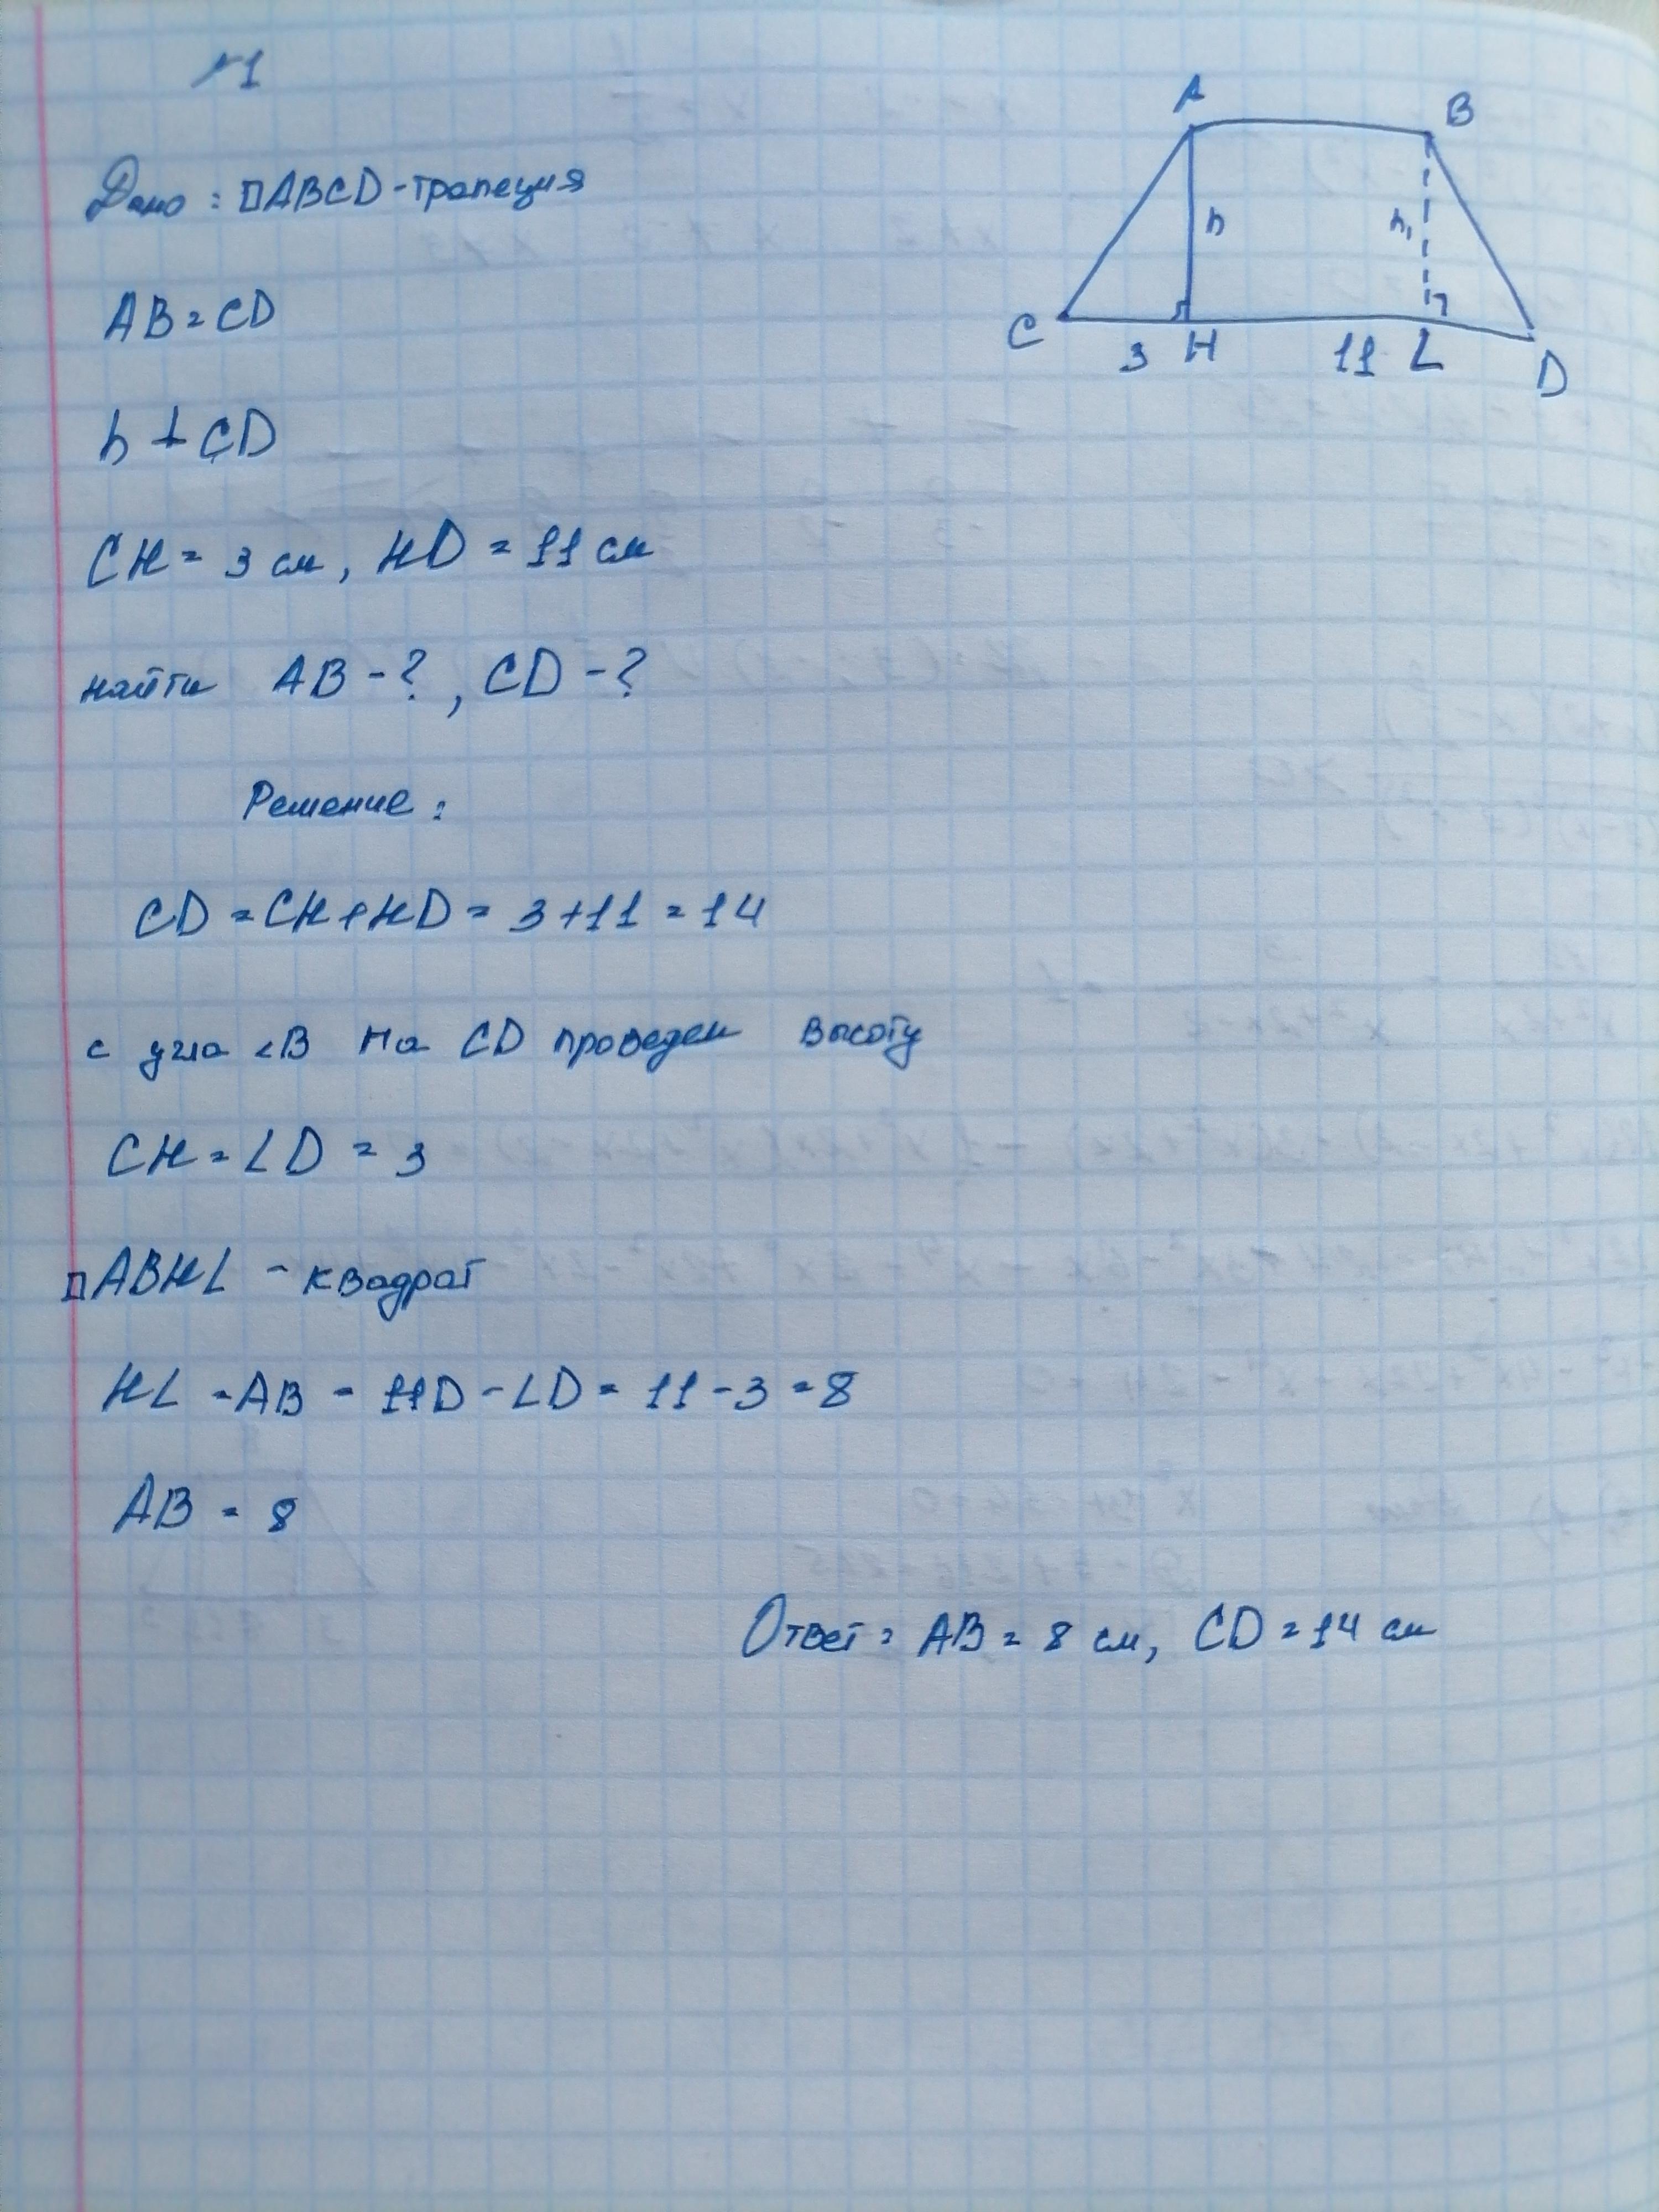 №1
Дано: □ABCD - трапеция
AB = CD
h ⊥ CD
CH = 3 см, HD = 11 см
найти AB - ?, CD - ?
A
B
h
h₁
C
3
H
11
L
D
Решение:
CD = CH + HD = 3 + 11 = 14
с угла ∠B на CD проведем высоту
CH = LD = 3
□ABHL - квадрат
HL = AB = HD - LD = 11 - 3 = 8
AB = 8
Ответ: AB = 8 см, CD = 14 см